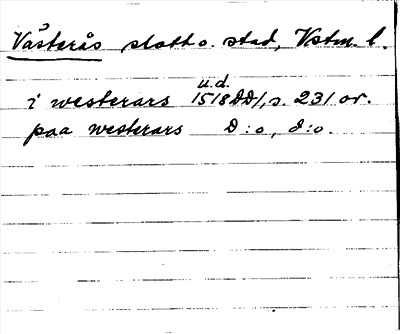 Västerås slott o. stad, Vstm. l.
u.d.
i westerars 1518 DD1, s. 231 or.
paa westerars D:o, d:o.